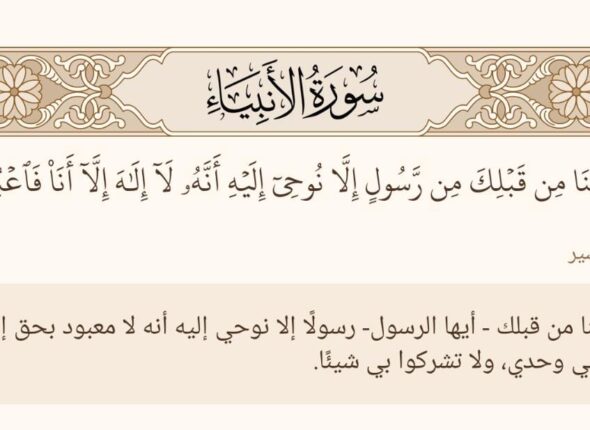 سُورَةُ الأَنبِيَاءِ
مِن قَبۡلِكَ مِن رَّسُولٍ إِلَّا نُوحِيٓ إِلَيۡهِ أَنَّهُۥ لَآ إِلَٰهَ إِلَّآ أَنَا۠
من قبلك - أيها الرسول- رسولًا إلا نوحي إليه أنه لا معبود بحق
وحدي، ولا تشركوا بي شيئًا.